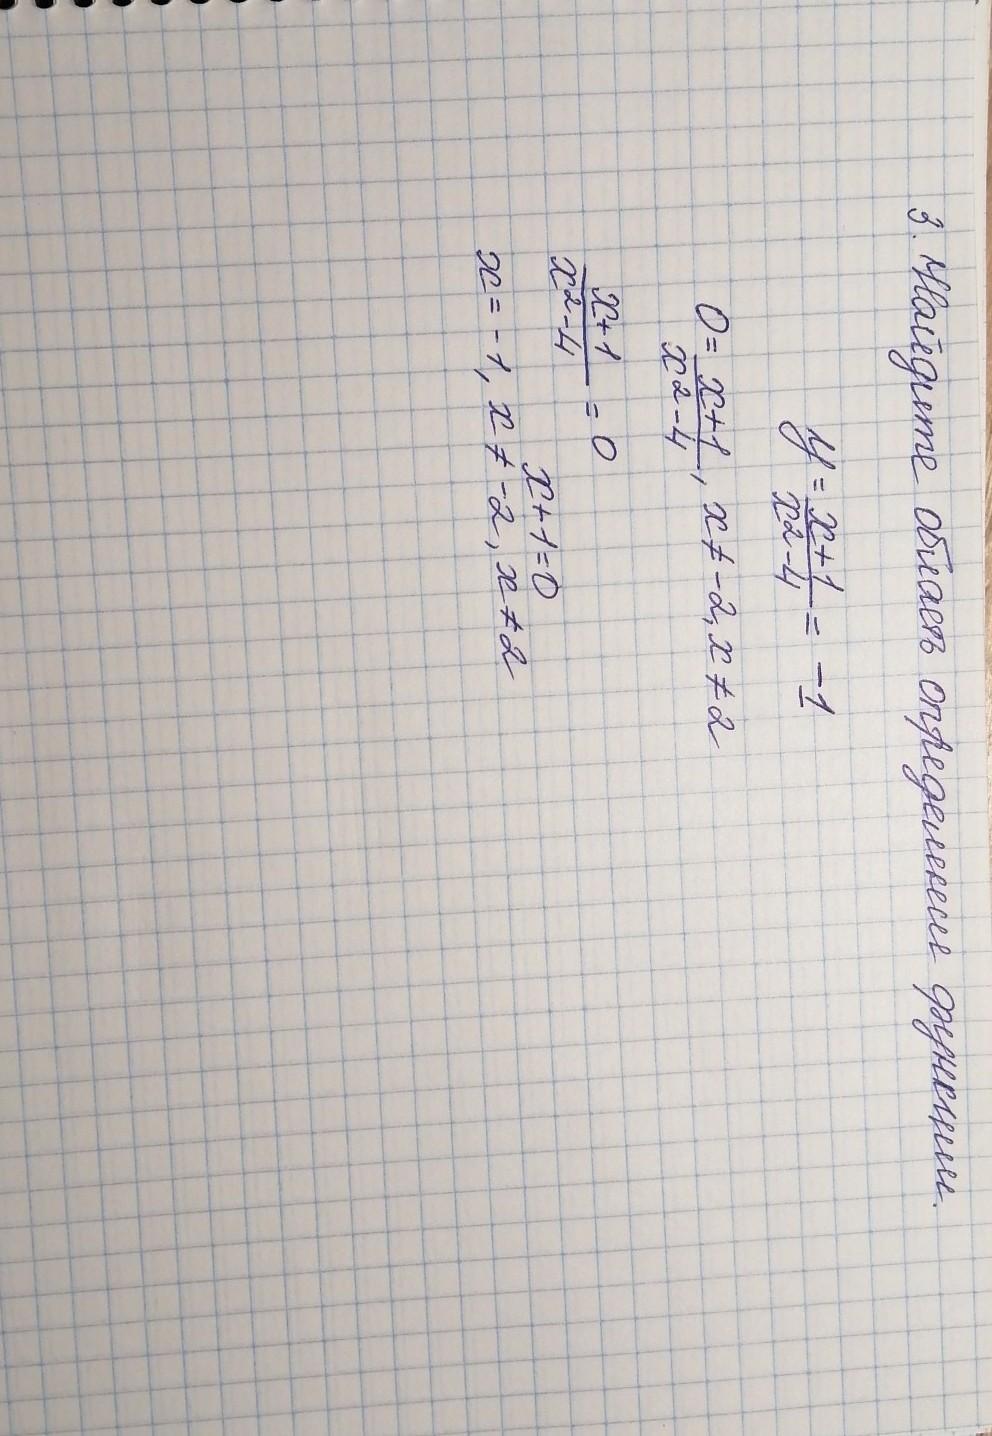 3. Найдите область определение функции.
y = x+1/x²-4 = -1
0 = x+1/x²-4, x ≠ -2, x ≠ 2
x+1/x²-4 = 0
x+1=0
x = -1, x ≠ -2, x ≠ 2